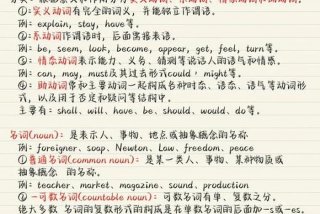 ①:实义动词有完全的词义,并能独立作谓语。
eg: explain, stay, have等。
②:系动词作谓语时,后面需接表语。
eg: be, seem, look, become, appear, get, feel, turn等。
③:情态动词表示能力、义务、猜测等说话人的语气和情感。
eg: can, may, must及其过去形式could, might等。
④:助动词常和主要动词一起构成各种时态、语态、语气等动词形
式,以及用于否定和疑问等结构中。
主要有: shall, will, have, be, should, would, do等。
名词(noun): 是表示人、事物、地点或抽象概念的名称
eg: foreigner, soap, Newton, Law, freedom, peace
①普通名词(common noun): 是某一类人、事物、某种物质或
抽象概念 的名称。
eg: teacher, market, magazine, sound, production
①-可数名词(countable noun): 可数名词有单、复数之分。
绝大多数 名词的复数形式的构成是在单数名词的后面加-s或-es.